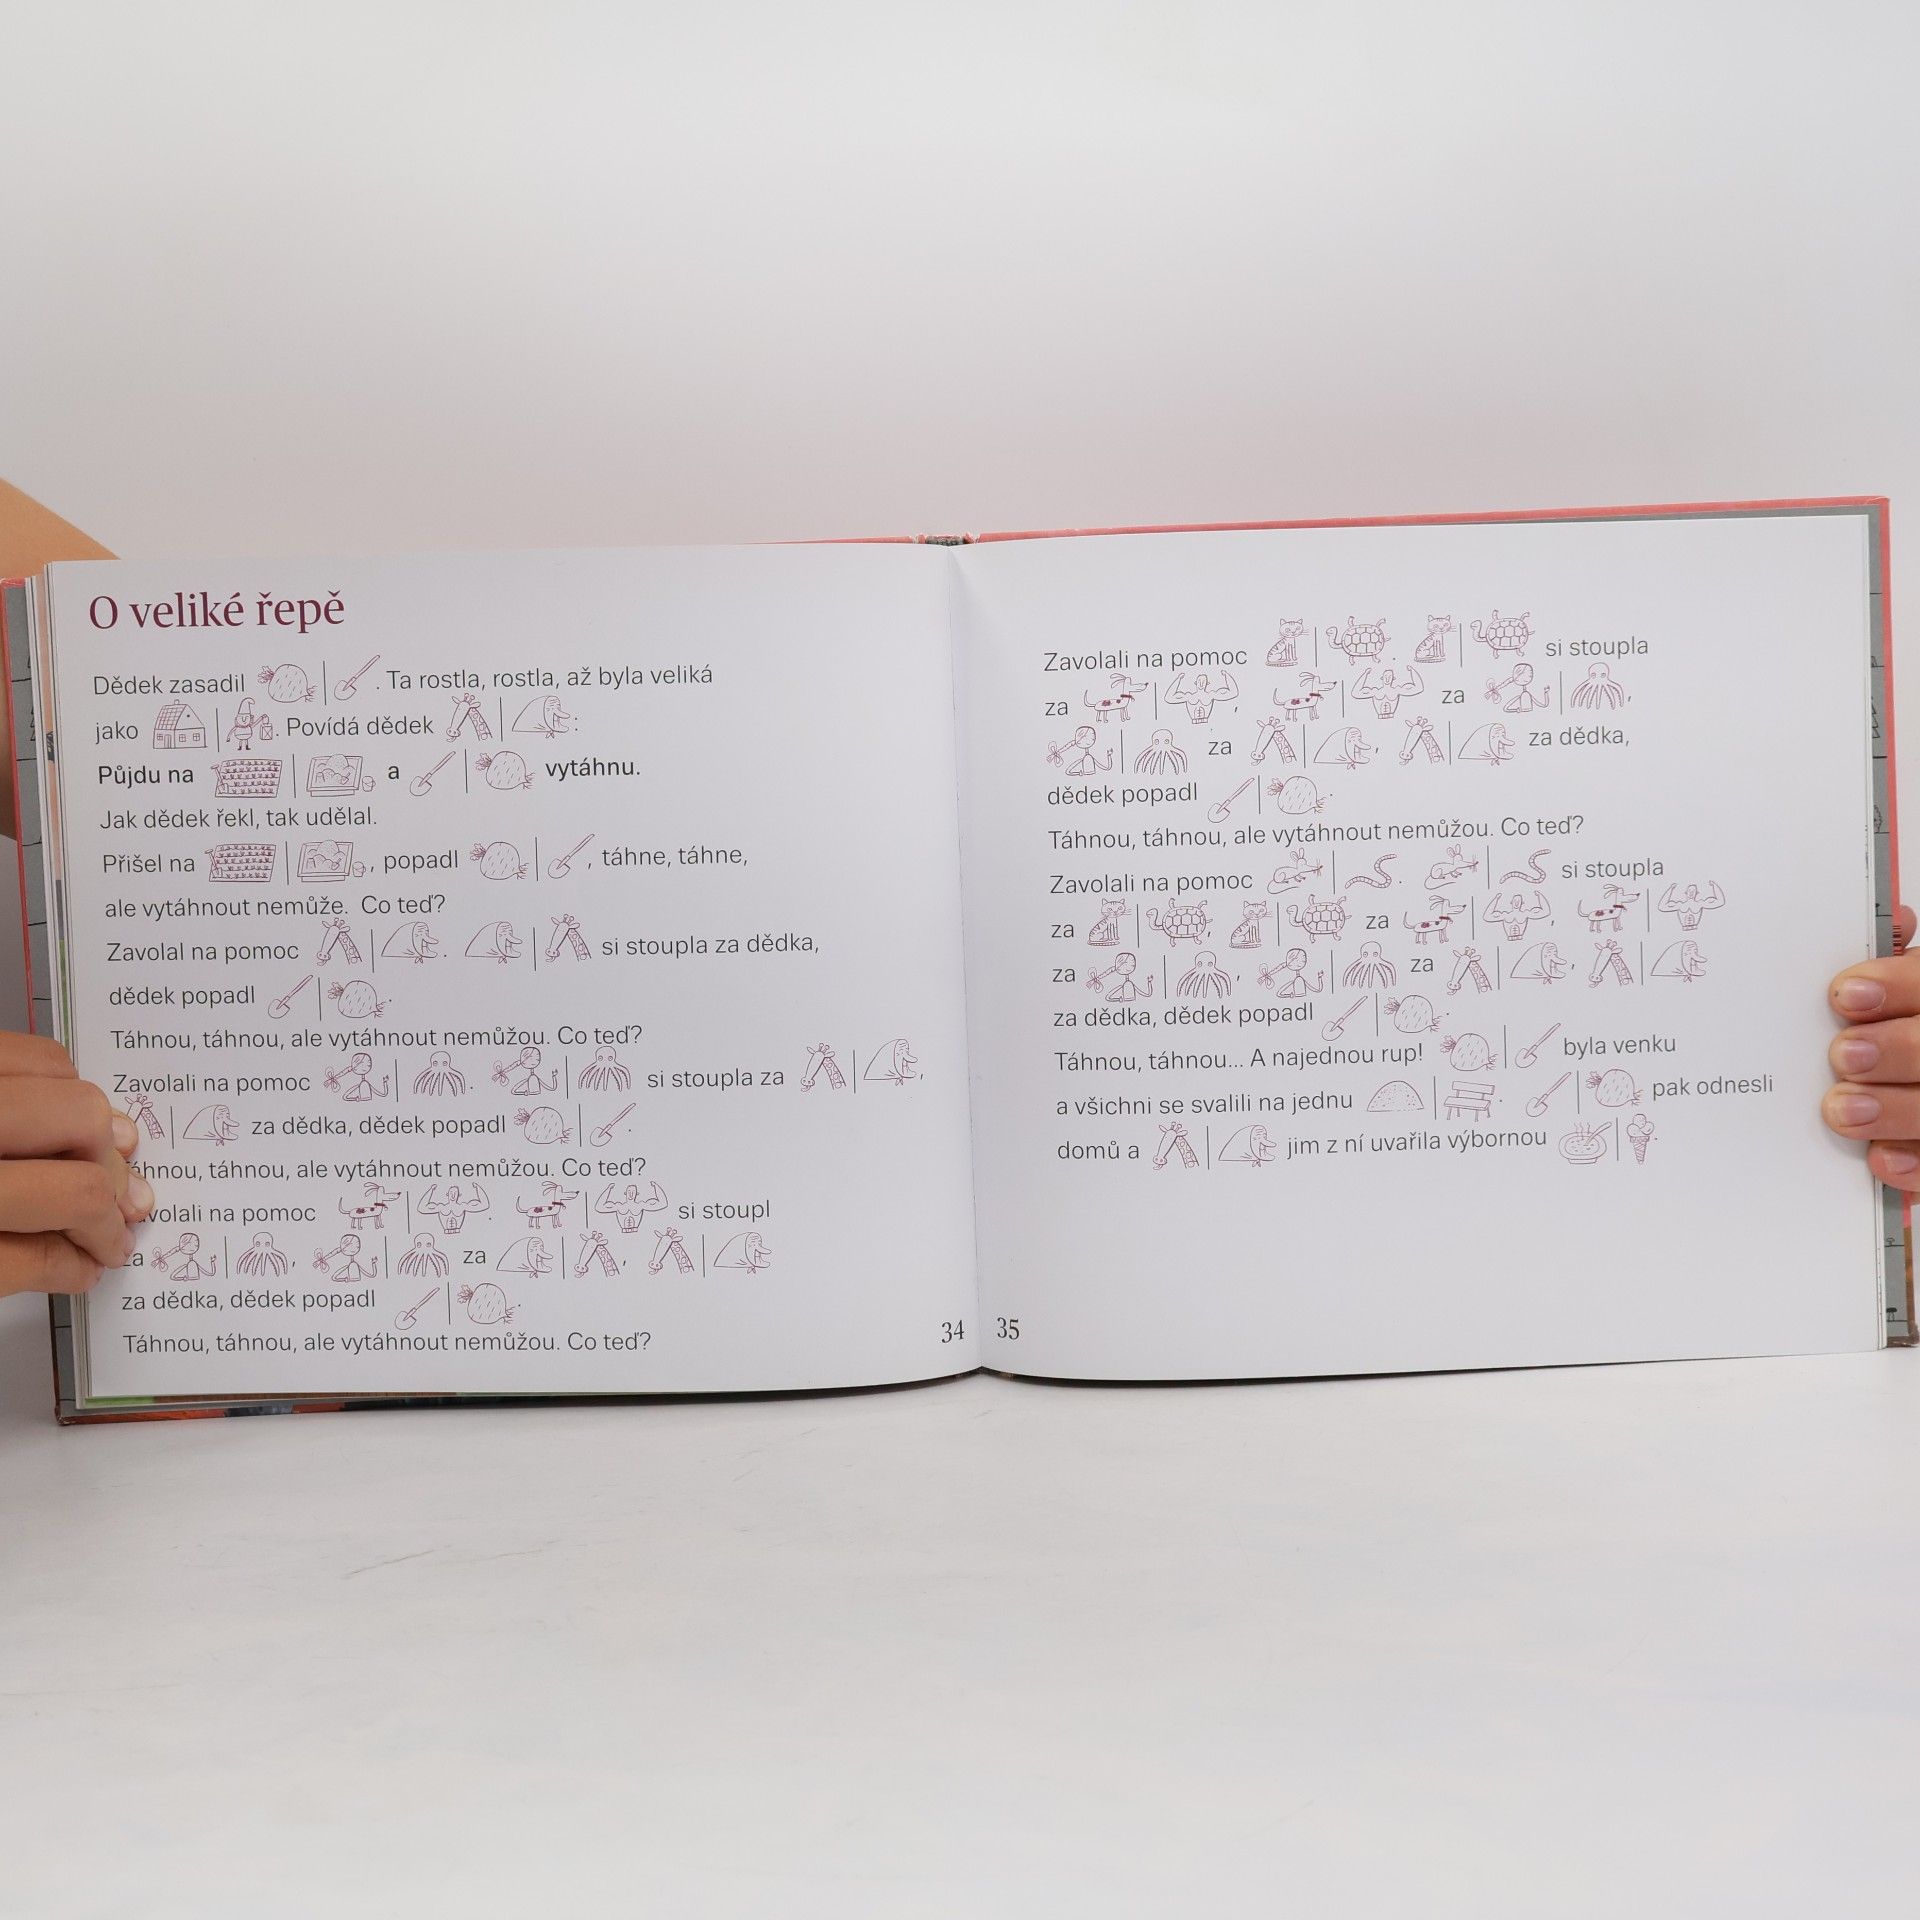 O veliké řepě
Dědek zasadil . Ta rostla, rostla, až byla veliká
jako . Povídá dědek :
Půjdu na a vytáhnu.
Jak dědek řekl, tak udělal.
Přišel na , popadl , táhne, táhne,
ale vytáhnout nemůže. Co teď?
Zavolal na pomoc . si stoupla za dědka,
dědek popadl .
Táhnou, táhnou, ale vytáhnout nemůžou. Co teď?
Zavolali na pomoc . si stoupla za ,
za dědka, dědek popadl .
Táhnou, táhnou, ale vytáhnout nemůžou. Co teď?
Zavolali na pomoc . si stoupl
za , za ,
za dědka, dědek popadl .
Táhnou, táhnou, ale vytáhnout nemůžou. Co teď?
34
Zavolali na pomoc . si stoupla
za , za ,
za , za dědka,
dědek popadl .
Táhnou, táhnou, ale vytáhnout nemůžou. Co teď?
Zavolali na pomoc . si stoupla
za , za ,
za , za ,
za dědka, dědek popadl .
Táhnou, táhnou... A najednou rup! byla venku
a všichni se svalili na jednu . pak odnesli
domů a jim z ní uvařila výbornou .
35